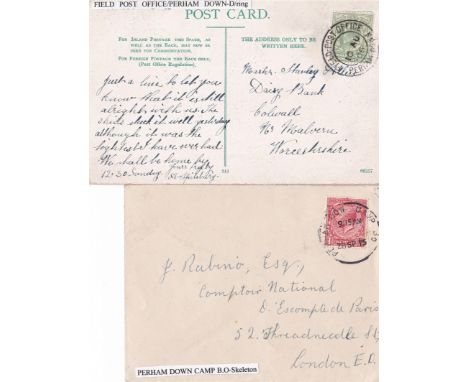 FIELD POST OFFICE/PERHAM DOWN-D/ring
POST CARD.
FOR INLAND POSTAGE THIS SPACE, AS
WELL AS THE BACK, MAY NOW BE
USED FOR COMMUNICATION.
FOR FOREIGN POSTAGE THE BACK ONLY.
(Post Office Regulation).
THE ADDRESS ONLY TO BE
WRITTEN HERE.
Just a line to let you
know that it is still
alright with us. The
stuck it well yesterday
although it was the
I have ever had
We shall be home by
12-30 Sunday. Yours
Master Stanley
Daisy Bank
Colwall
Nr Malvern
Worcestershire
POST OFFICE
PERHAM DOWN CAMP
9.15AM
28 SP 15
J. Rubino, Esq.,
Comptoir National
D'Escompte de Paris
52 Threadneedle St,
London E.C.
PERHAM DOWN CAMP B.O-Skeleton